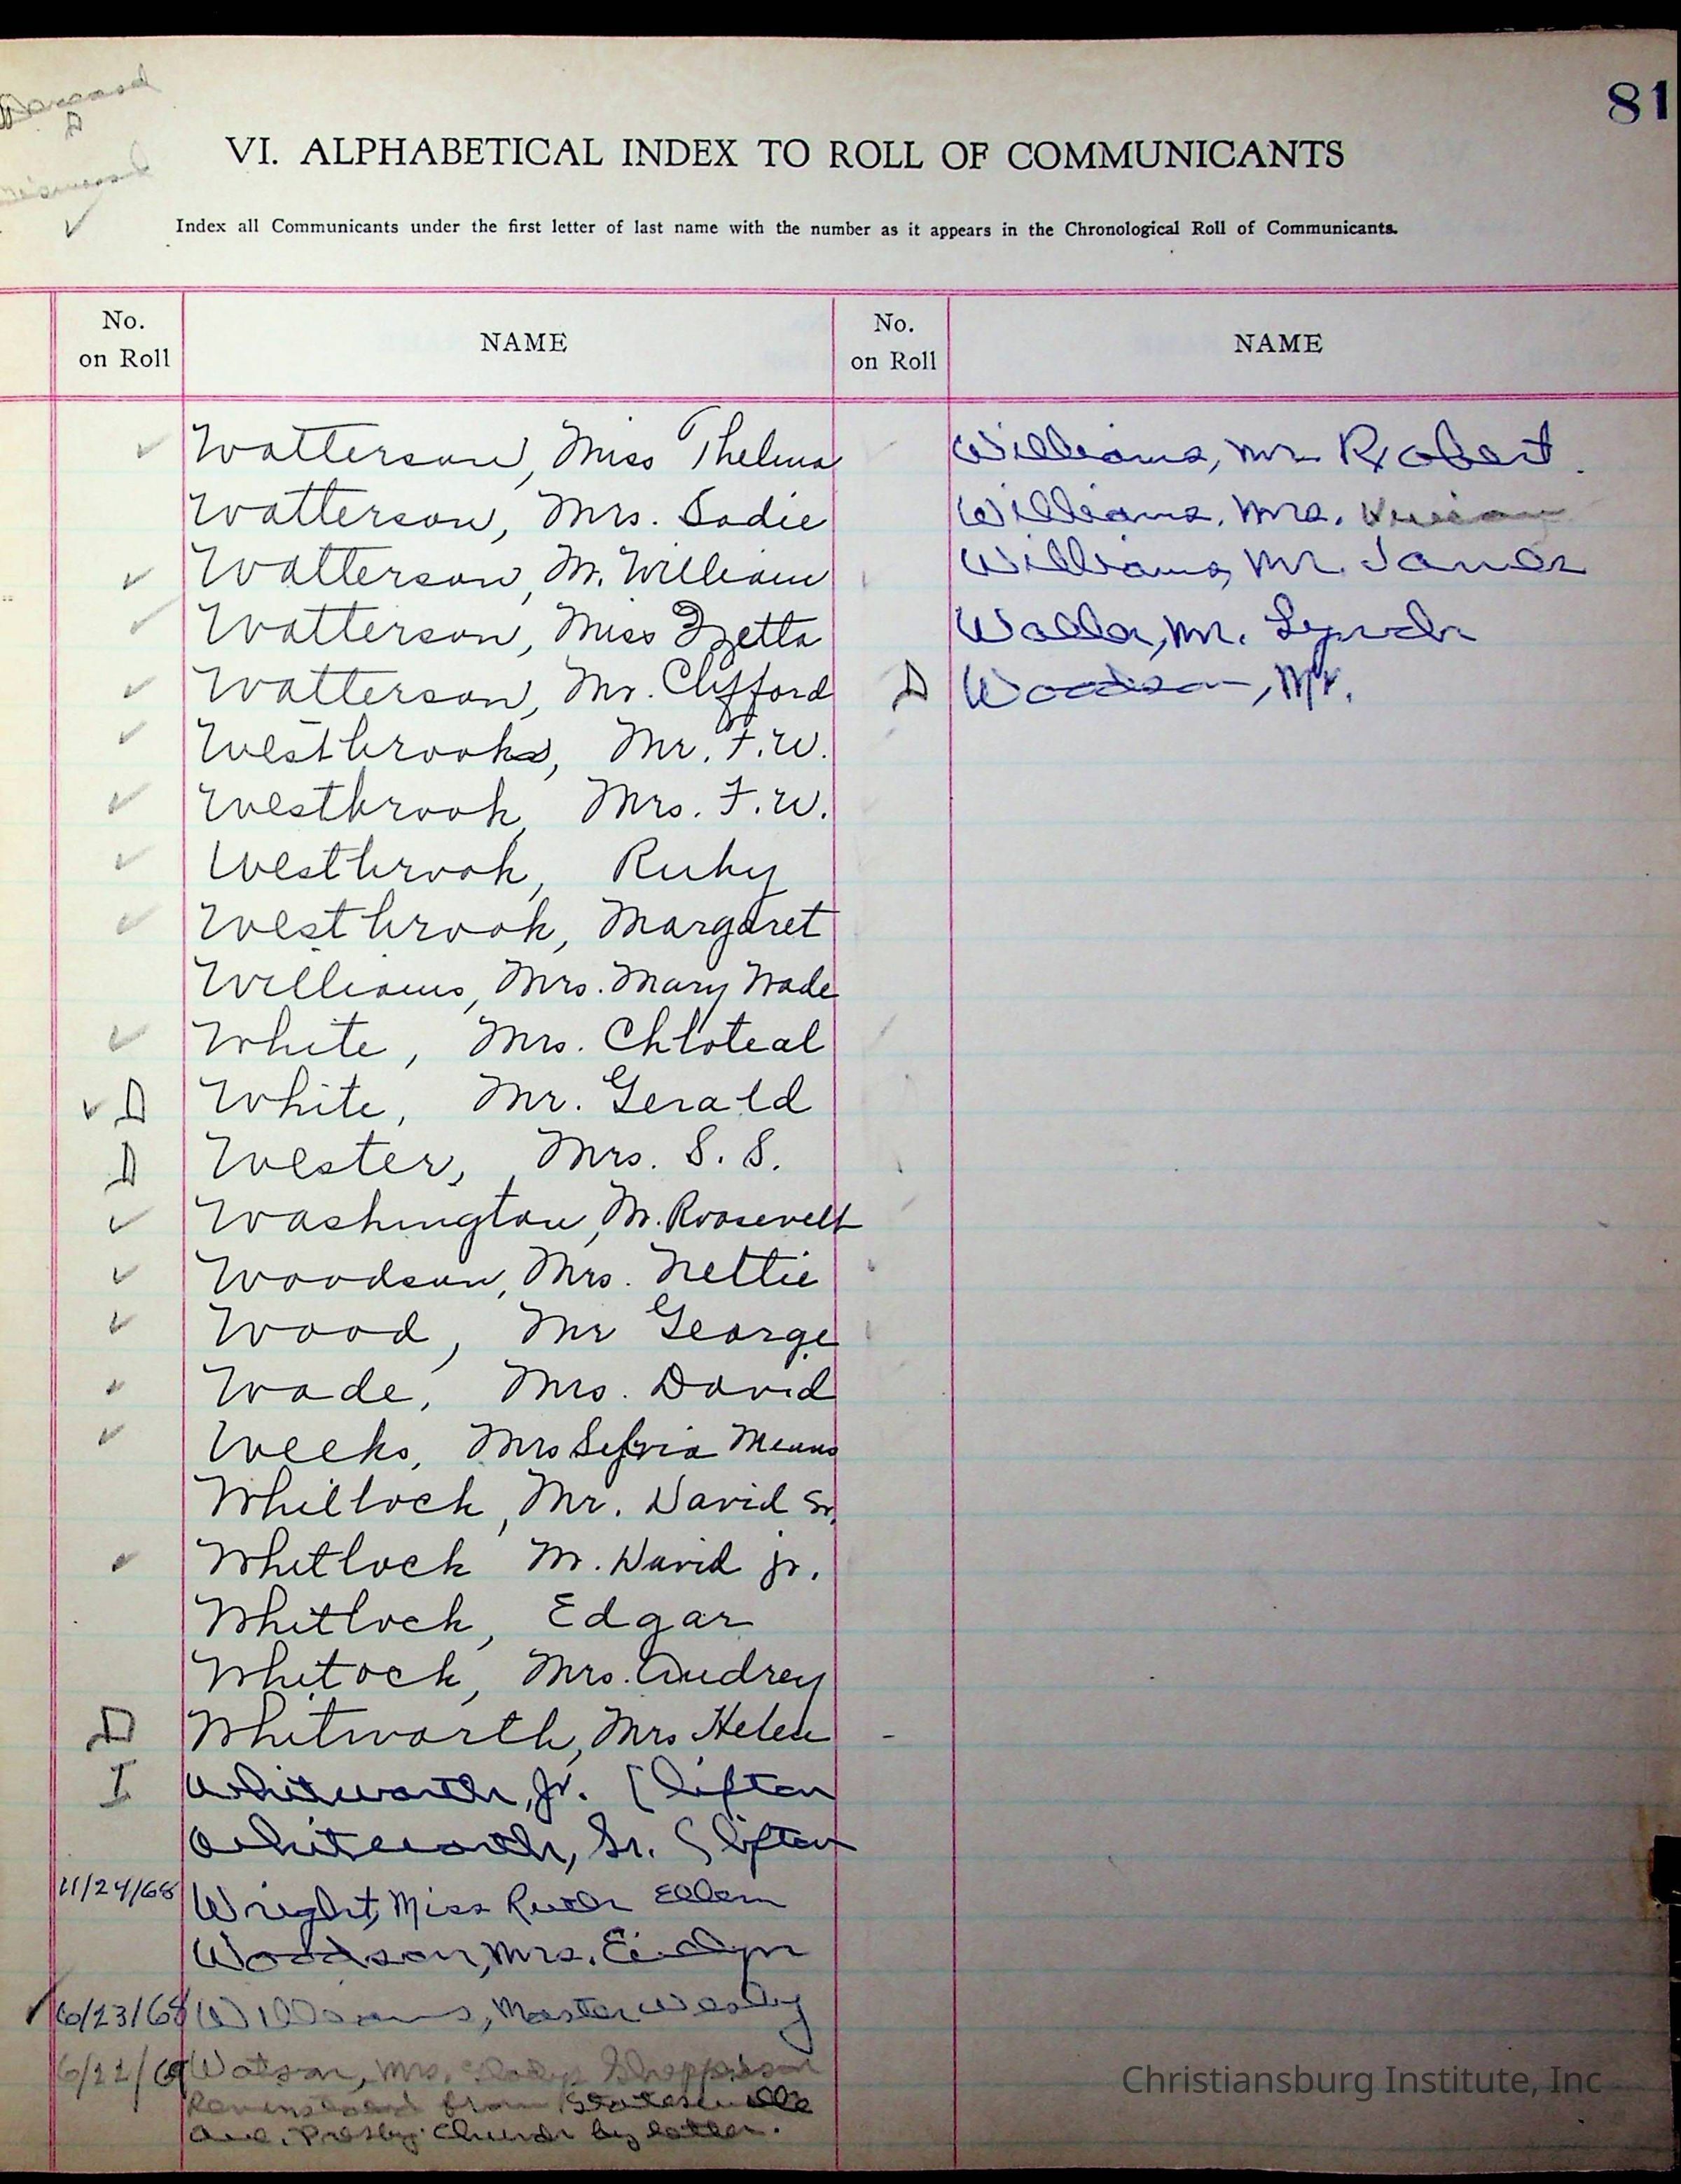 Deceased
D
Dismissed
✓
81
VI. ALPHABETICAL INDEX TO ROLL OF COMMUNICANTS
Index all Communicants under the first letter of last name with the number as it appears in the Chronological Roll of Communicants.
No. on Roll NAME
✓ Watterson, Miss Thelma
Watterson, Mrs. Sadie
✓ Watterson, Mr. William
✓ Watterson, Miss Izetta
✓ Watterson, Mr. Clifford
✓ Westbrooks, Mr. F.W.
✓ Westbrook, Mrs. F.W.
✓ Westbrook, Ruby
✓ Westbrook, Margaret
Williams, Mrs. Mary Wade
✓ White, Mrs. Chloteal
✓ D White, Mr. Gerald
D Wester, Mrs. S. S.
✓ Washington, Mr. Roosevelt
✓ Woodson, Mrs. Nettie
✓ Wood, Mr George
✓ Wade, Mrs. David
✓ Weeks, Mrs Sylvia Means
Whitlock, Mr. David Sr.
✓ Whitlock Mr. David jr.
Whitlock, Edgar
Whitock, Mrs. Audrey
D Whitworth, Mrs Helen
I Whitworth, Jr. Clifton
Whitworth, Sr. Clifton
11/24/68 Wright, Miss Ruth Ellen
Woodson, Mrs. Evelyn
✓ 6/23/68 Williams, Master Wesley
6/22/69 Watson, Mrs. Gladys
from Statesville
Ave. Presby. Church by letter.
No. on Roll NAME
Williams, Mr. Robert
Williams, Mrs. Vivian
Williams, Mr. James
Waller, Mr. Lynch
D Woodson, Mr.
Christiansburg Institute, Inc